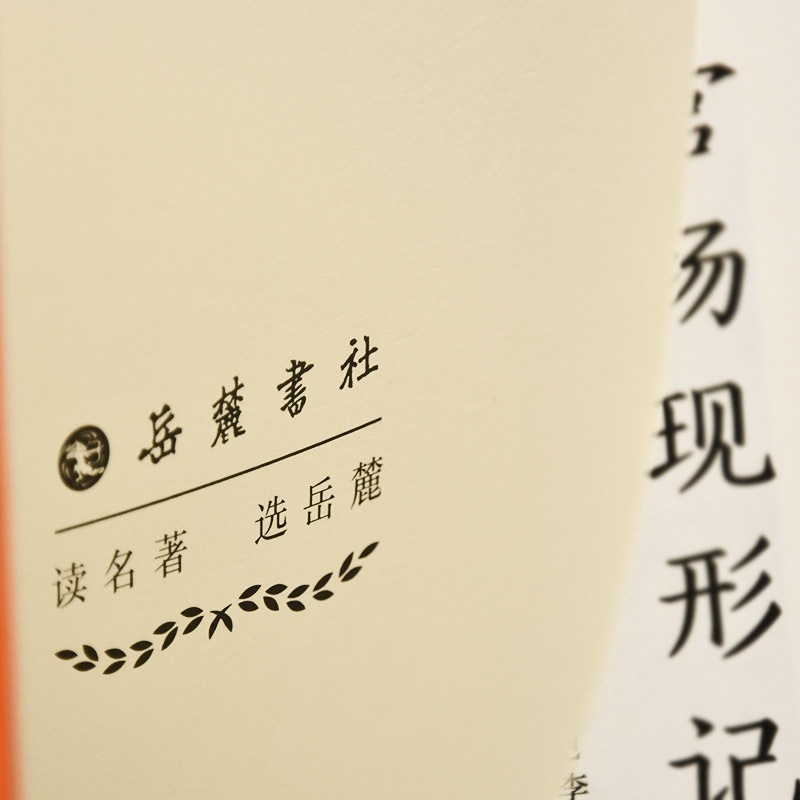 岳麓書社
读名著 选岳麓
官场现形记
李